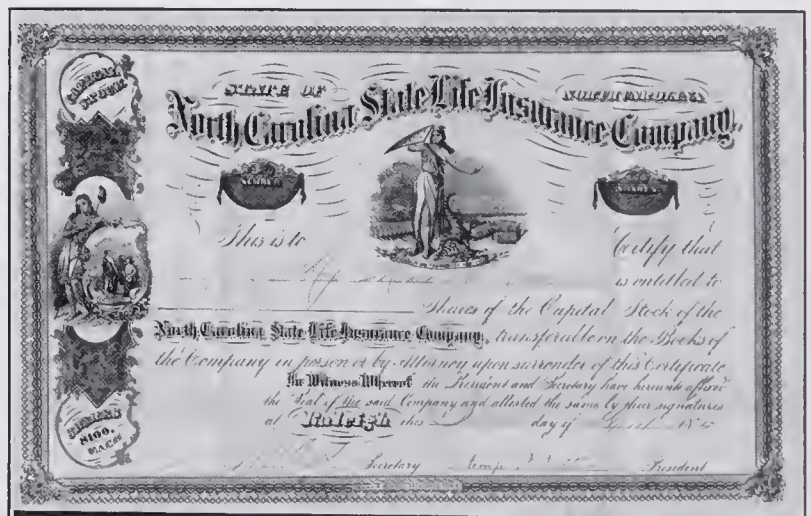 CAPITAL STOCK
STATE OF NORTH CAROLINA
North Carolina State Life Insurance Company.
NUMBER
SHARES
This is to Certify that
is entitled to
Shares of the Capital Stock of the
North Carolina State Life Insurance Company, transferable on the Books of
the Company in person or by Attorney upon surrender of this Certificate
In Witness Whereof the President and Secretary have hereunto affixed
the Seal of the said Company and attested the same by their signatures
at Raleigh this day of 18
Secretary President
SHARES
$100.
EACH